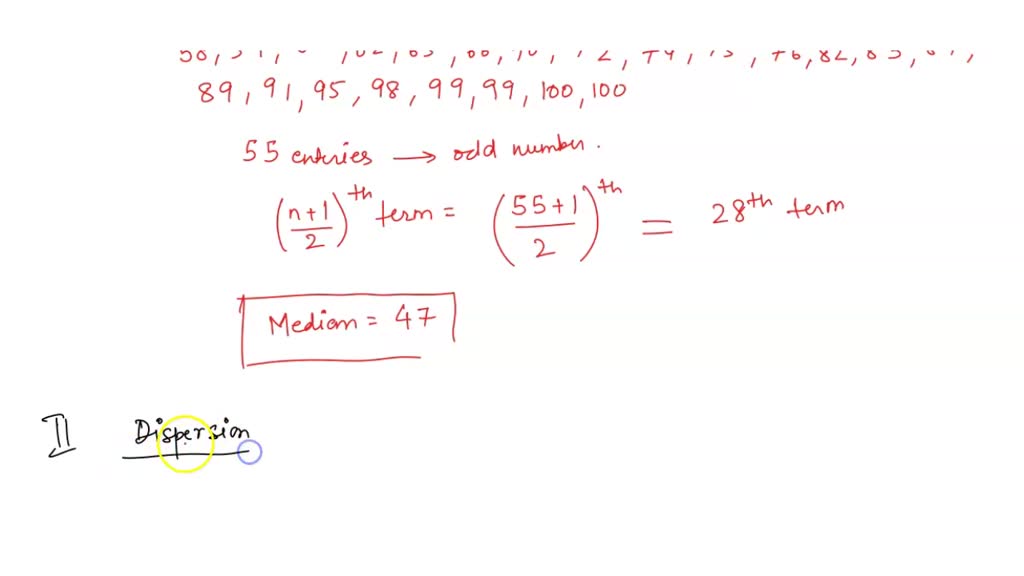 82,
89, 91, 95, 98, 99, 99, 100, 100
55 entries → odd number.
(n+1/2)^th term = (55+1/2)^th = 28^th term
Median = 47
II Dispersion